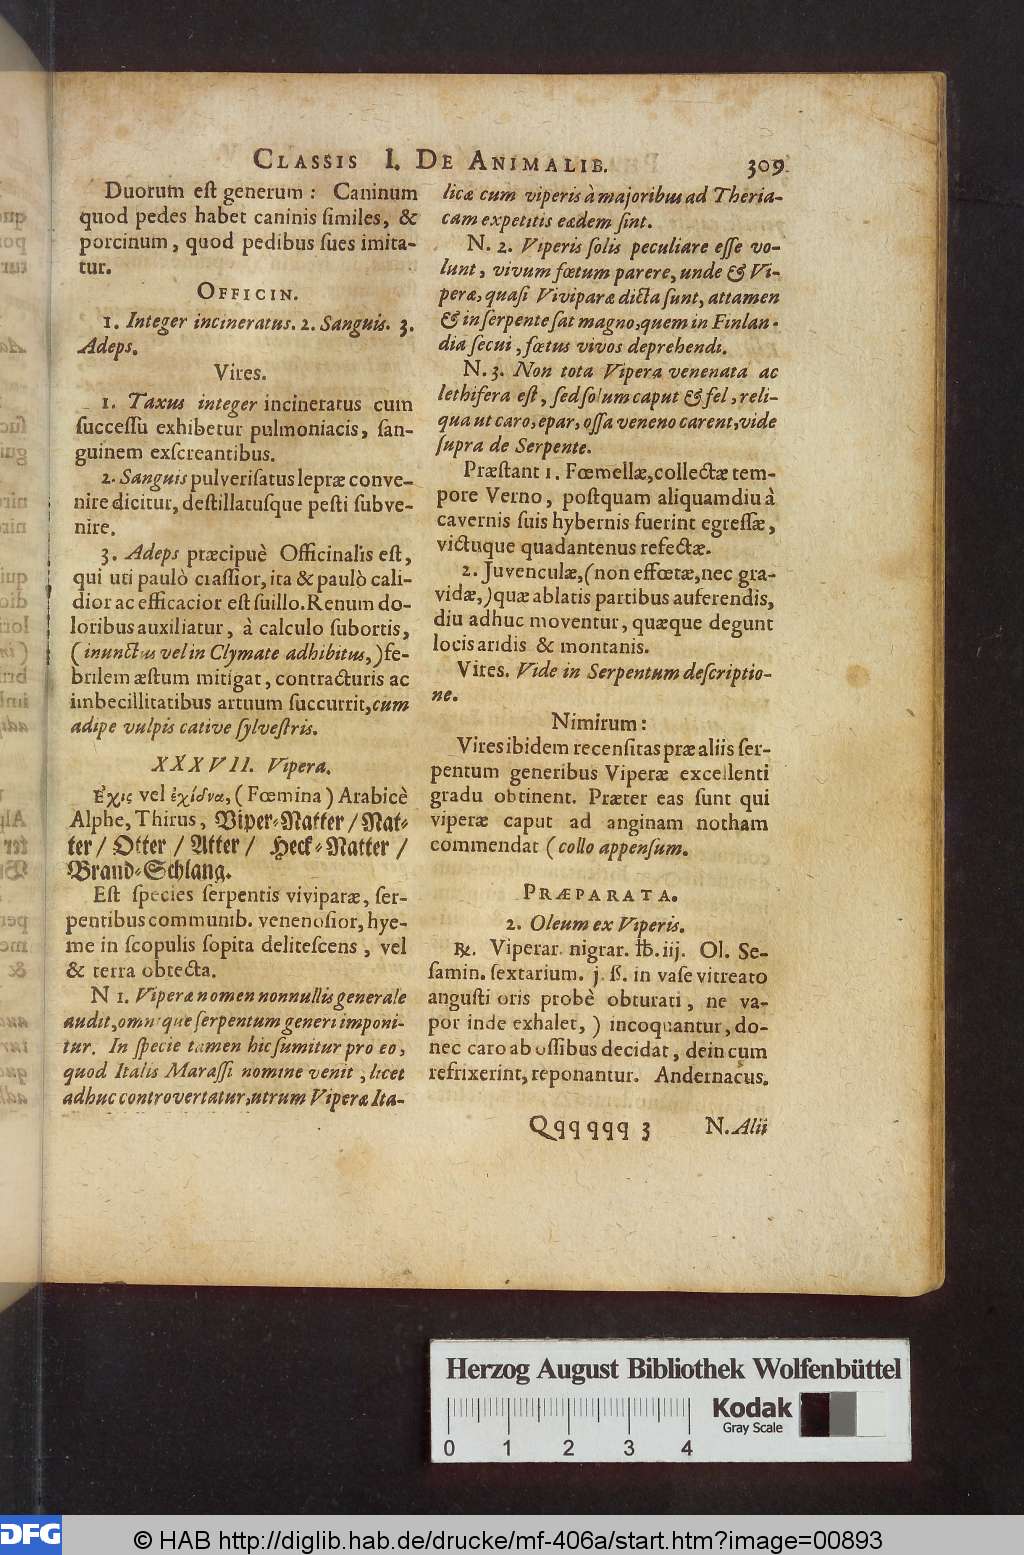 CLASSIS I. DE ANIMALIB. 309
Duorum eſt generum : Caninum
quod pedes habet caninis ſimiles, &
porcinum, quod pedibus ſues imita-
tur.
OFFICIN.
1. Integer incineratus. 2. Sanguis. 3.
Adeps.
Vires.
1. Taxus integer incineratus cum
ſucceſſu exhibetur pulmoniacis, ſan-
guinem exſcreantibus.
2. Sanguis pulveriſatus lepræ conve-
nire dicitur, deſtillatuſque peſti ſubve-
nire.
3. Adeps præcipuè Officinalis eſt,
qui uti paulò craſſior, ita & paulò cali-
dior ac efficacior eſt ſuillo. Renum do-
loribus auxiliatur, à calculo ſubortis,
(inunctus vel in Clymate adhibitus,) fe-
brilem æſtum mitigat, contracturis ac
imbecillitatibus artuum ſuccurrit, cum
adipe vulpis cative ſylveſtris.
XXXVII. Vipera.
Ἔχις vel ἐχίδνα, (Fœmina) Arabicè
Alphe, Thirus, Viper-Natter / Nat-
ter / Otter / Atter / Heck-Natter /
Brand-Schlang.
Eſt ſpecies ſerpentis viviparæ, ſer-
pentibus communib. venenoſior, hye-
me in ſcopulis ſopita delitefcens, vel
& terra obtecta.
N 1. Viperæ nomen nonnullis generale
audit, omnique ſerpentum generi imponi-
tur. In ſpecie tamen hic ſumitur pro eo,
quod Italis Maraſſi nomine venit, licet
adhuc controvertatur, utrum Viperæ Ita-
licæ cum viperis à majoribus ad Theria-
cam expetitis eædem ſint.
N. 2. Viperis ſolis peculiare eſſe vo-
lunt, vivum fœtum parere, unde & Vi-
peræ, quaſi Viviparæ dicta ſunt, attamen
& in ſerpente ſat magno, quem in Finlan-
dia ſecui, fœtus vivos deprehendi.
N. 3. Non tota Vipera venenata ac
lethifera eſt, ſed ſolum caput & fel, reli-
qua ut caro, epar, oſſa veneno carent, vide
ſupra de Serpente.
Præſtant 1. Fœmellæ, collectæ tem-
pore Verno, poſtquam aliquamdiu à
cavernis ſuis hybernis fuerint egreſſæ,
victuque quadantenus refectæ.
2. Juvenculæ, (non effœtæ, nec gra-
vidæ,) quæ ablatis partibus auferendis,
diu adhuc moventur, quæque degunt
locis aridis & montanis.
Vires. Vide in Serpentum deſcriptio-
ne.
Nimirum:
Vires ibidem recenſitas præ aliis ſer-
pentum generibus Viperæ excellenti
gradu obtinent. Præter eas ſunt qui
viperæ caput ad anginam notham
commendat (collo appenſum.
PRÆPARATA.
2. Oleum ex Viperis.
℞. Viperar. nigrar. ℔. iij. Ol. Se-
ſamin. ſextarium. j. ſſ. in vaſe vitreato
anguſti oris probè obturati, ne va-
por inde exhalet, ) incoquantur, do-
nec caro ab oſſibus decidat, dein cum
refrixerint, reponantur. Andernacus.
Qqqqqq 3 N. Alii
Herzog August Bibliothek Wolfenbüttel
Kodak
Gray Scale
0 1 2 3 4
DFG
© HAB http://diglib.hab.de/drucke/mf-406a/start.htm?image=00893